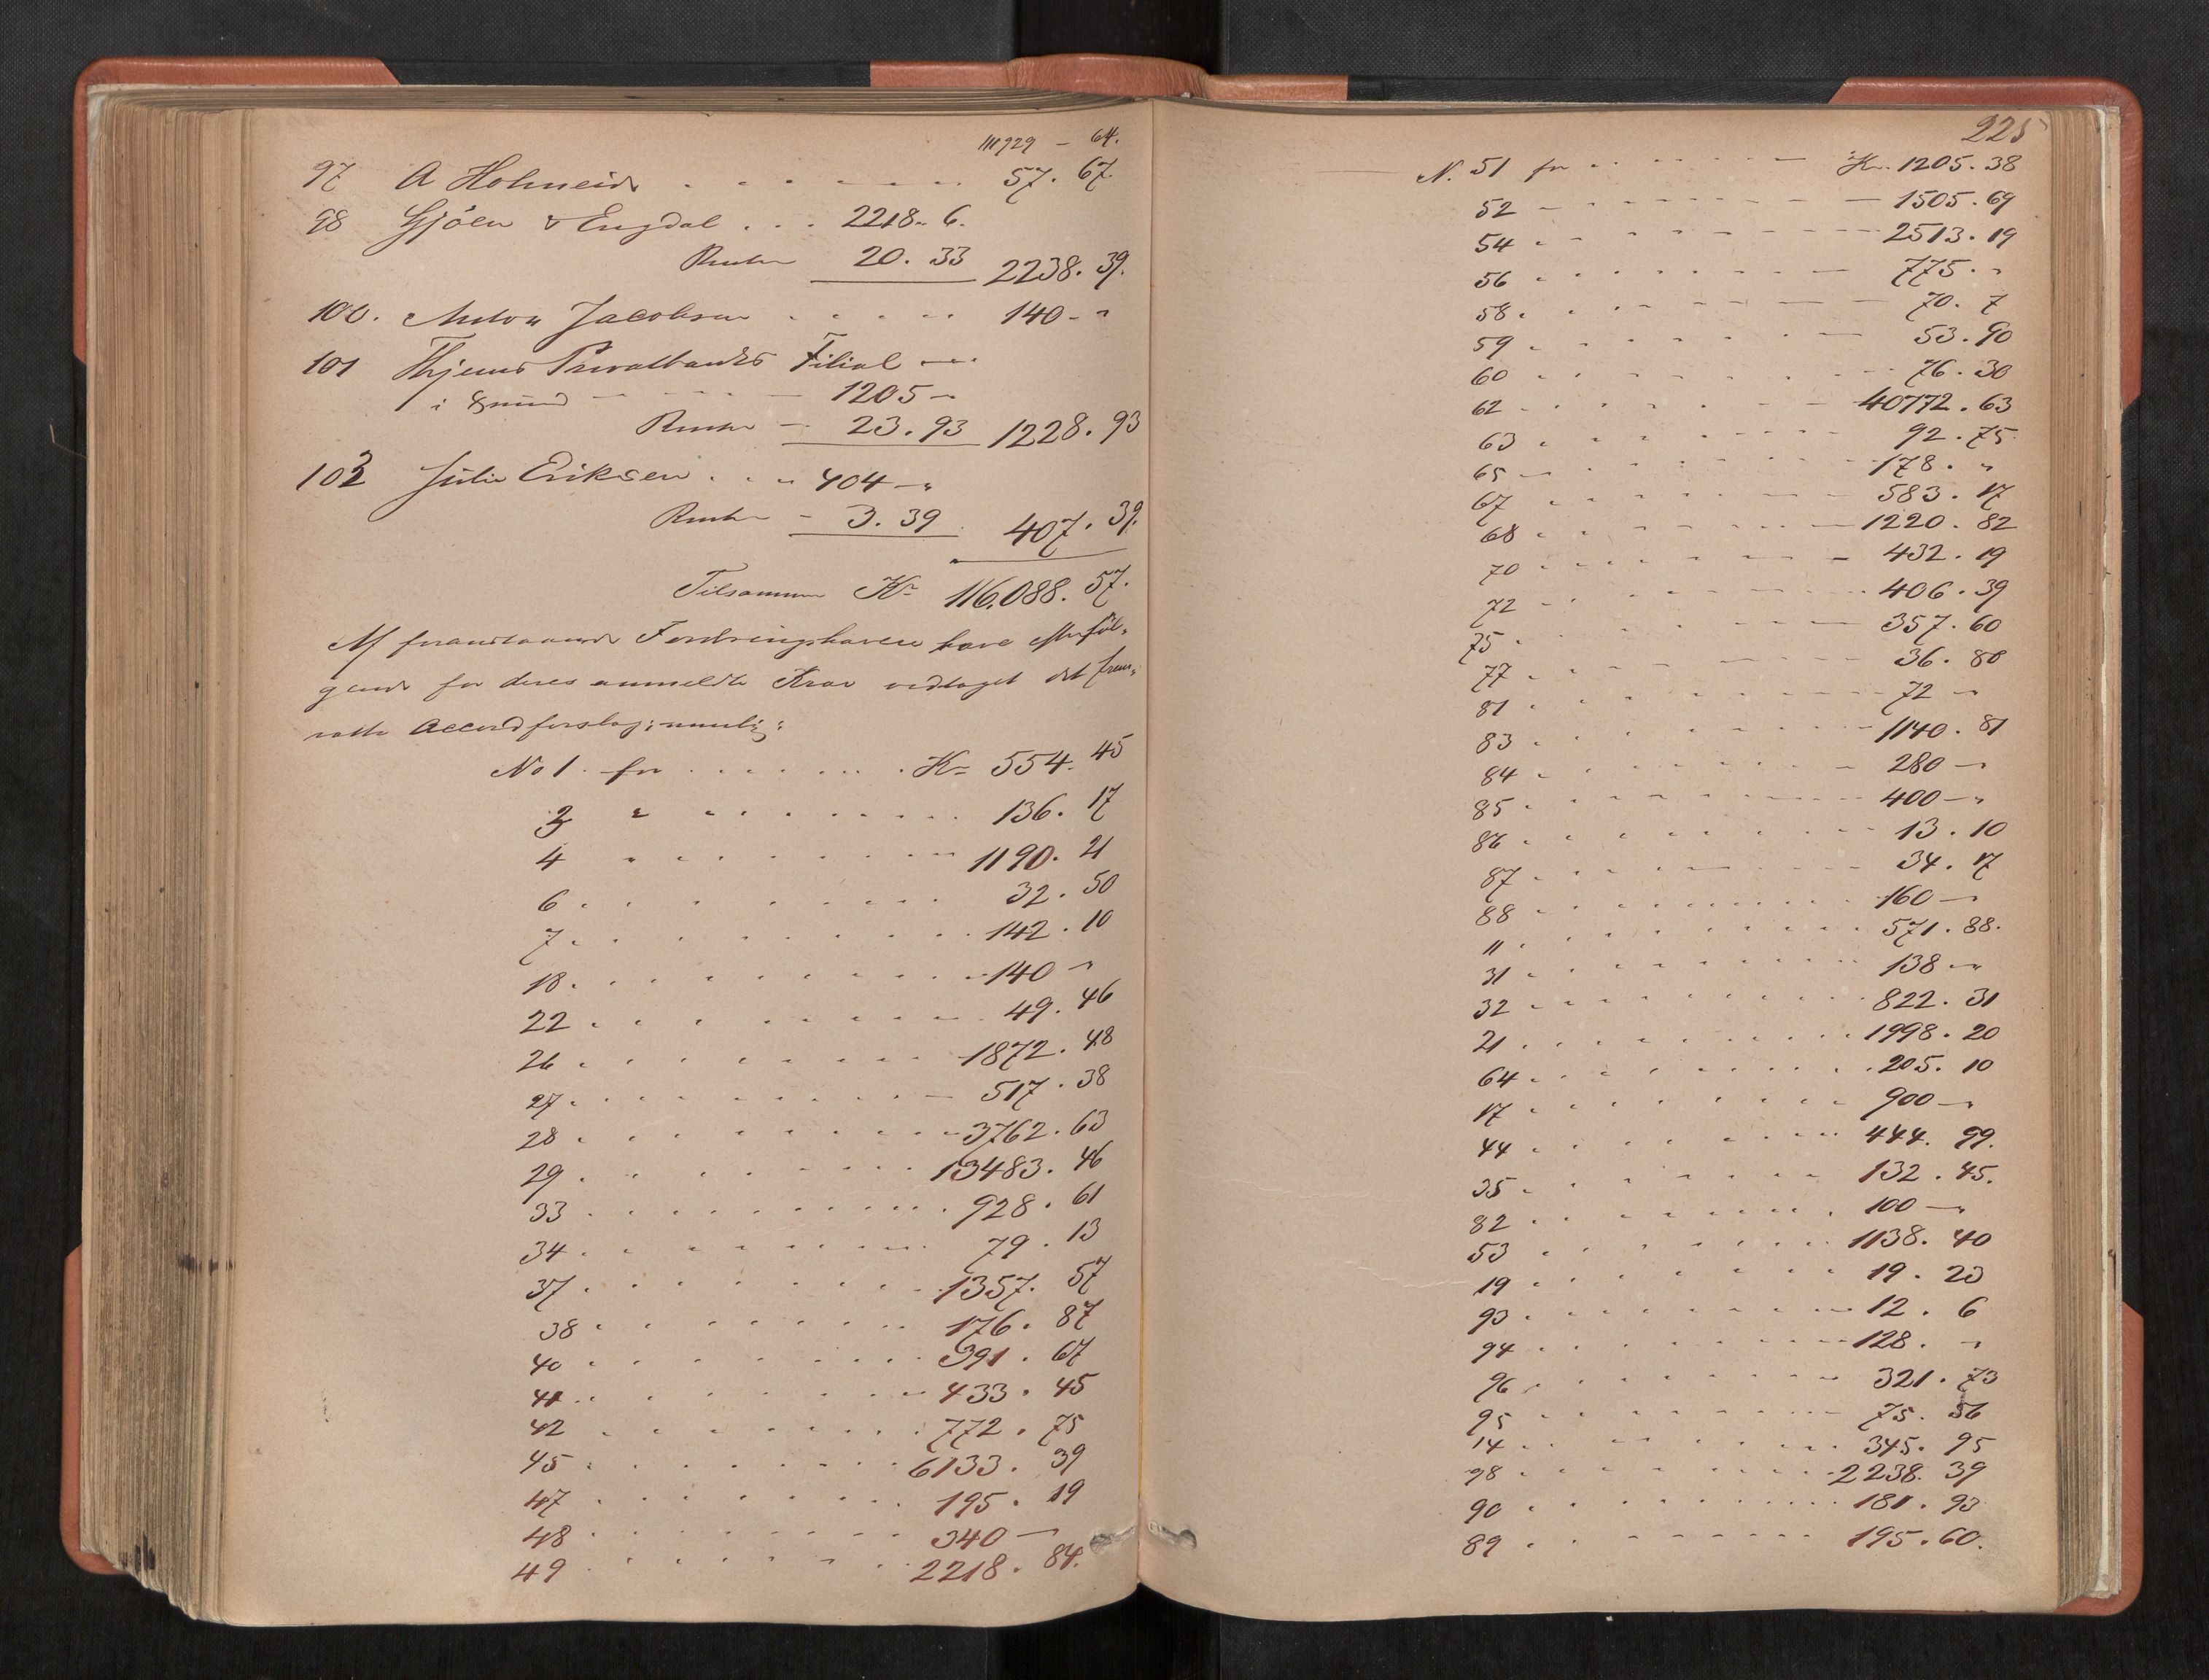 111929 – 64.
97 A Holmeide . . . . . . 57. 67.
98 Gjöen & Engdal . . . 2218. 6.
Renter 20. 33 2238. 39.
100. Anton Jacobsen . . . . . 140 - "
101 Thjems Privatbanks Filial —
i Xsund - - - - 1205 –
Renter – 23. 93 1228. 93
103 Julie Eriksen . . . 404 – "
Renter – 3. 39 407. 39.
Tilsammen Kr 116.088. 57.
Af foranstaaende Fordringshavere have efterföl-
gende for deres anmeldte Krav vedtaget det frem-
satte Accordforslag; nemlig:
No 1. for . . . . . . . Kr 554. 45
3 " . . . . . . . 136. 17
4 " . . . . . . . 1190. 21
6 . . . . . . . 32. 50
7 . . . . . . . 142. 10
18 . . . . . . . 140 "
22 . . . . . . . 49. 46
26 . . . . . . . 1872. 48
27 . . . . . . . 517. 38
28 . . . . . . . 3762. 63
29 . . . . . . . 13483. 46
33 . . . . . . . 928. 61
34 . . . . . . . 79. 13
37 . . . . . . . 1357. 57
38 . . . . . . . 176. 87
40 . . . . . . . 391. 67
41 . . . . . . . 433. 45
42 . . . . . . . 772. 75
45 . . . . . . . 6133. 39
47 . . . . . . . 195. 19
48 . . . . . . . 340 —
49 . . . . . . . 2218. 84.
225
N. 51 for . . . . . . . Kr. 1205. 38
52 – . . . . . . . 1505. 69
54 . . . . . . . 2513. 19
56 . . . . . . . 775. "
58 . . . . . . . 70. 7
59 . . . . . . . 53. 90
60 . . . . . . . 76. 30
62 . . . . . . . 40772. 63
63 . . . . . . . 92. 75
65 . . . . . . . 178. "
67 . . . . . . . 583. 17
68 . . . . . . . 1220. 82
70 . . . . . . . 432. 19
72 . . . . . . . 406. 39
75 . . . . . . . 357. 60
77 . . . . . . . 36. 80
81 . . . . . . . 72 –
83 . . . . . . . 1140. 81
84 . . . . . . . 280 –
85 . . . . . . . 400 – "
86 . . . . . . . 13. 10
87 . . . . . . . 34. 17
88 . . . . . . . 160 –
11 . . . . . . . 571. 88.
31 . . . . . . . 138 – "
32 . . . . . . . 822. 31
21 . . . . . . . 1998. 20
64 . . . . . . . 205. 10
17 . . . . . . . 900 –
44 . . . . . . . 444. 99.
35 . . . . . . . 132. 45.
82 . . . . . . . 100 –
53 . . . . . . . 1138. 40
19 . . . . . . . 19. 23
93 . . . . . . . 12. 6
94 . . . . . . . 128. "
96 . . . . . . . 321. 73
95 . . . . . . . 75. 56
14 . . . . . . . 345. 95
98 . . . . . . . 2238. 39
90 . . . . . . . 181. 93
89 . . . . . . . 195. 60.